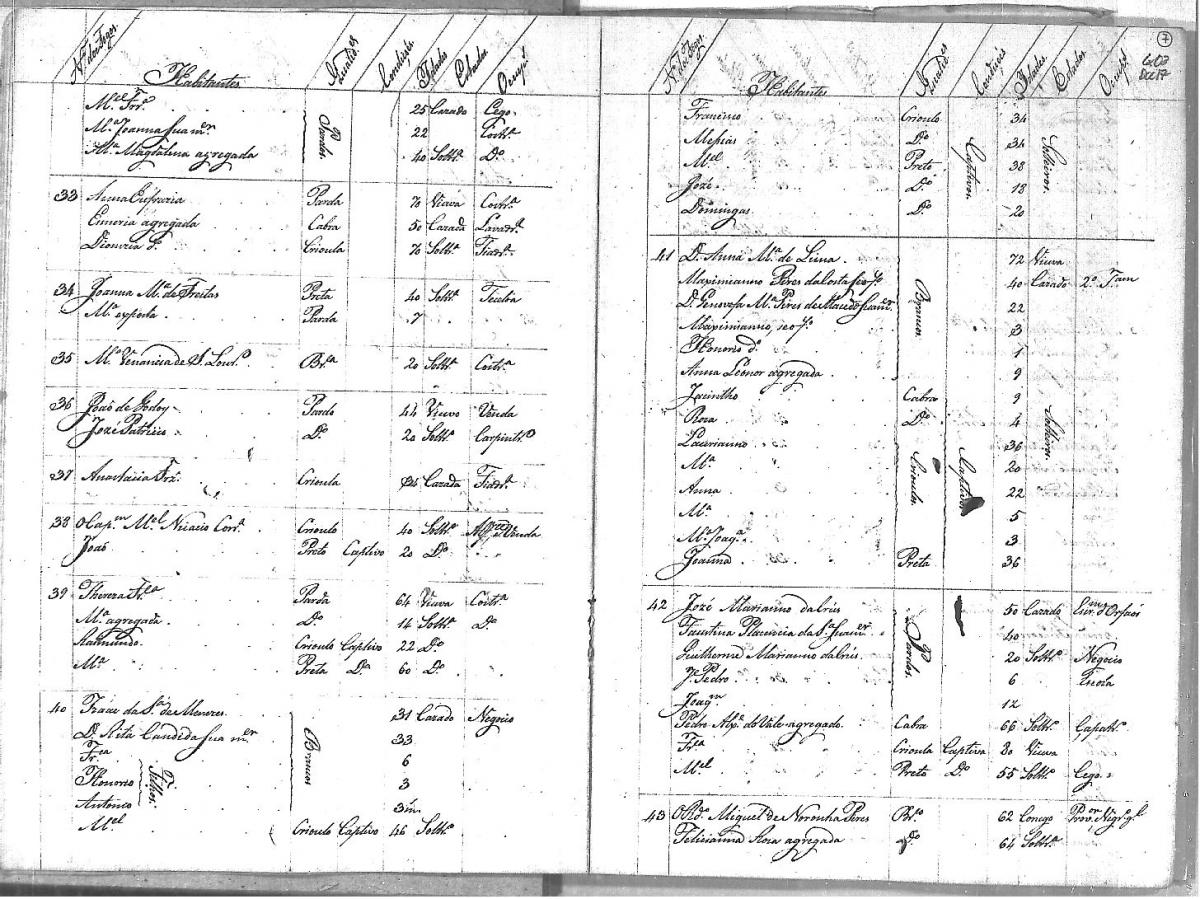 Nos dos Fogos Habitantes Qualides Condições Idades Estados Ocupç
Mel Frz 25 Cazado Cego
Ma Joanna sua mer 22 Costra
Ma Magdalena agregada 40 Soltra Do
Pardos
33 Anna Eufrazia Parda 70 Viuva Costra
Emeria agregada Cabra 50 Cazada Lavadra
Dionizia do Crioula 70 Soltra Fiadra
34 Joanna Ma de Freitas Preta 40 Soltra Tecelia
Ma exposta Parda 7
35 Ma Venancia de S. Lourço Bra 20 Soltra Costra
36 João de Godoy Pardo 44 Viuvo Venda
Jozé Patricio Do 20 Soltro Carpintro
37 Anastacia Frz Crioula Cazada Fiadra
38 O Capm Mel Corra Crioulo 40 Soltro Venda
João Preto Captivo 20 Do
39 Thereza Parda 64 Viuva Costra
Ma agregada Do 14 Soltra Do
Raimundo Crioulo Captivo 22 Do
Ma Preta Da 60 Do
40 da Sa de Menezes 31 Cazado Negocio
D. Rita Candida sua mer 33
Fra 6
Honorio 3
Antonio 3m
Filhos
Brancos
Mel Crioulo Captivo 46 Soltro
7
603
Doc 17
Nos dos Fogos Habitantes Qualides Condiçōis Idades Estados Ocupç
Francisco Crioulo 34
Mesias Do 34
Mel Preto 38
Jozé Do 18
Domingas Do 20
Captivos
Solteiros
41 D. Anna Ma de Lima 72 Viuva
Maximianno Pires da Costa seo fo 40 Cazado 2o Tam
D. Genovefa Ma Pires de Macedo sua mer 22
Maximianno, seo fo 3
Honorio do 1
Anna Leonor agregada 9
Brancos
Jacintho Cabra 9
Roza Do 4
Laurianno 36
Ma 20
Anna 22
Ma 5
Ma Joaqa 3
Crioulos
Captivos
Solteiros
Joanna Preta 36
42 Jozé Marianno da Cruz 50 Cazado Orfaos
Faustina Placencia da Sa sua mer 40
Guilherme Marianno da Cruz 20 Soltro Negocio
Pedro 6 Escola
Joaqm 12
Pardos
Pedro Alz do Vale agregado Cabra 66 Soltro Çapatro
Fra Crioula Captiva 80 Viuva
Mel Preto Do 55 Soltro Cego
43 O Rdo Miguel de Noronha Peres Bro 62 Conego
Felicianna Roza agregada Do 64 Soltra